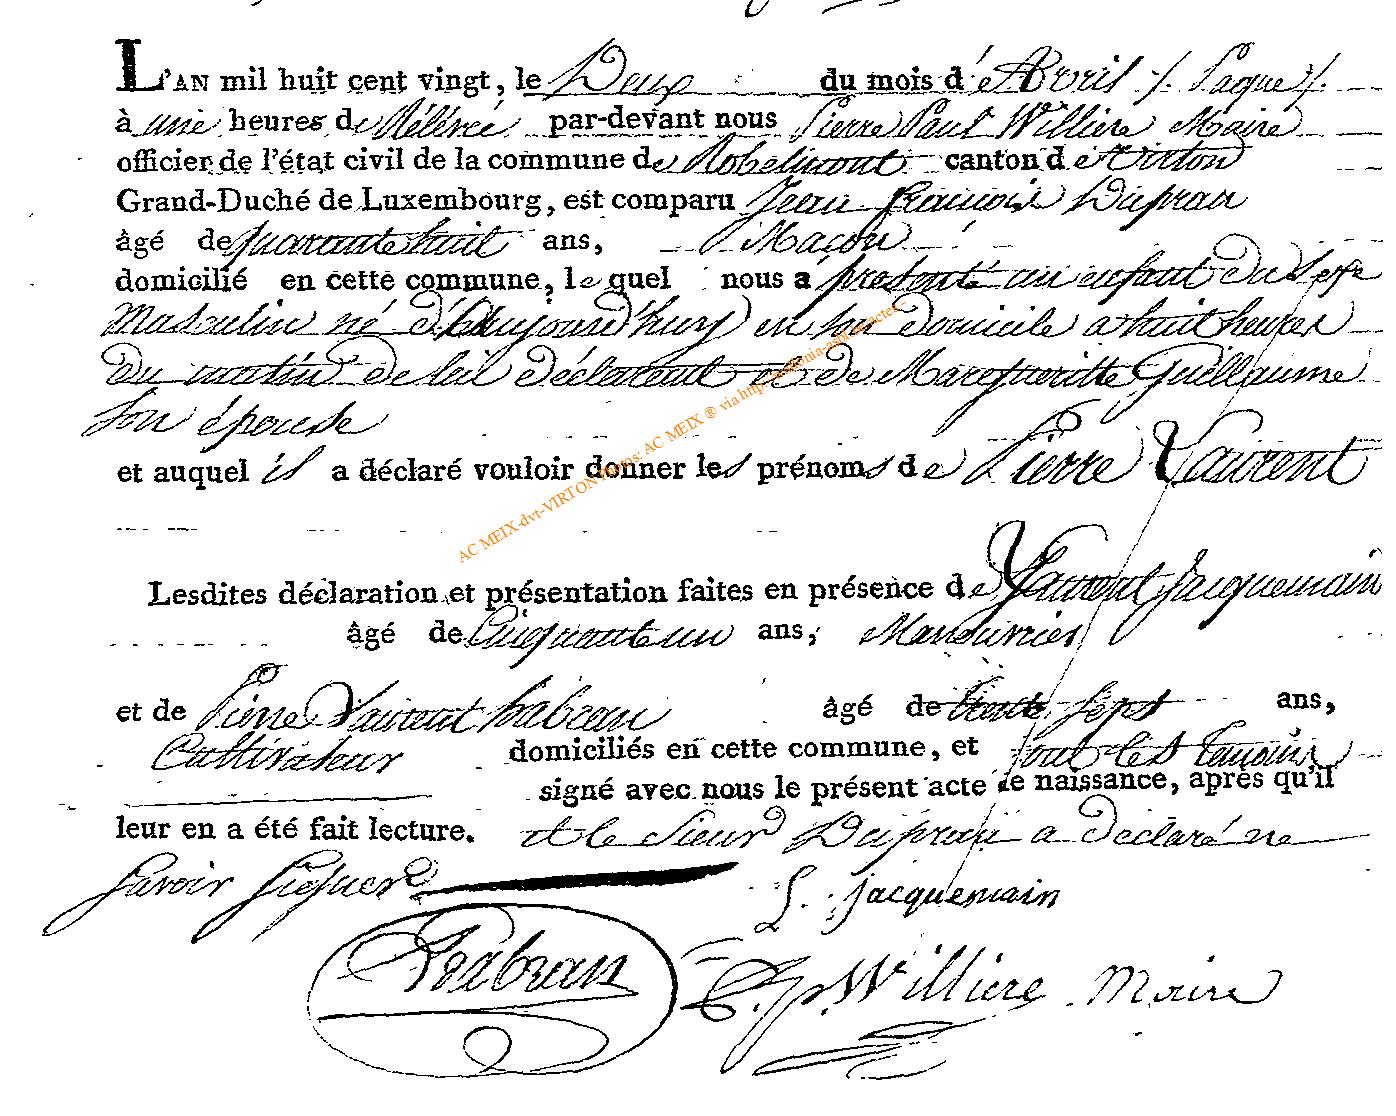 L'AN mil huit cent vingt, le Deux du mois d'Avril /. Paque /.
à une heures de Rélévée par-devant nous Pierre Paul Williere Maire
officier de l'état civil de la commune de Robelmont canton de Virton
Grand-Duché de Luxembourg, est comparu Jean François Dupran
âgé de quarante huit ans, Maçon
domicilié en cette commune, le quel nous a présenté un enfant du Sexe
Masculin né d'Aujourd'huy en son domicile a huit heures
du matin de lui déclarant et de Margueritte Guillaume
son épouse
et auquel il a déclaré vouloir donner les prénoms de Pierre Laurent
Lesdites déclaration et présentation faites en présence de Laurent Jacquemain
âgé de Cinquante un ans, Manouvrier
et de Pierre Laurent habran âgé de trente sept ans,
Cultivateur domiciliés en cette commune, et ont les temoins
signé avec nous le présent acte de naissance, après qu'il
leur en a été fait lecture. et le Sieur Dupran a déclaré ne
savoir signer
L. Jacquemain
habran P. p. Williere Maire
AC MEIX-dvt-VIRTON Photos: AC MEIX ® via